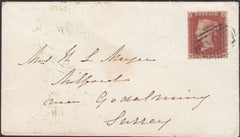 Mrs H L Meyer
Milford
near Godalming
Surrey
POSTAGE